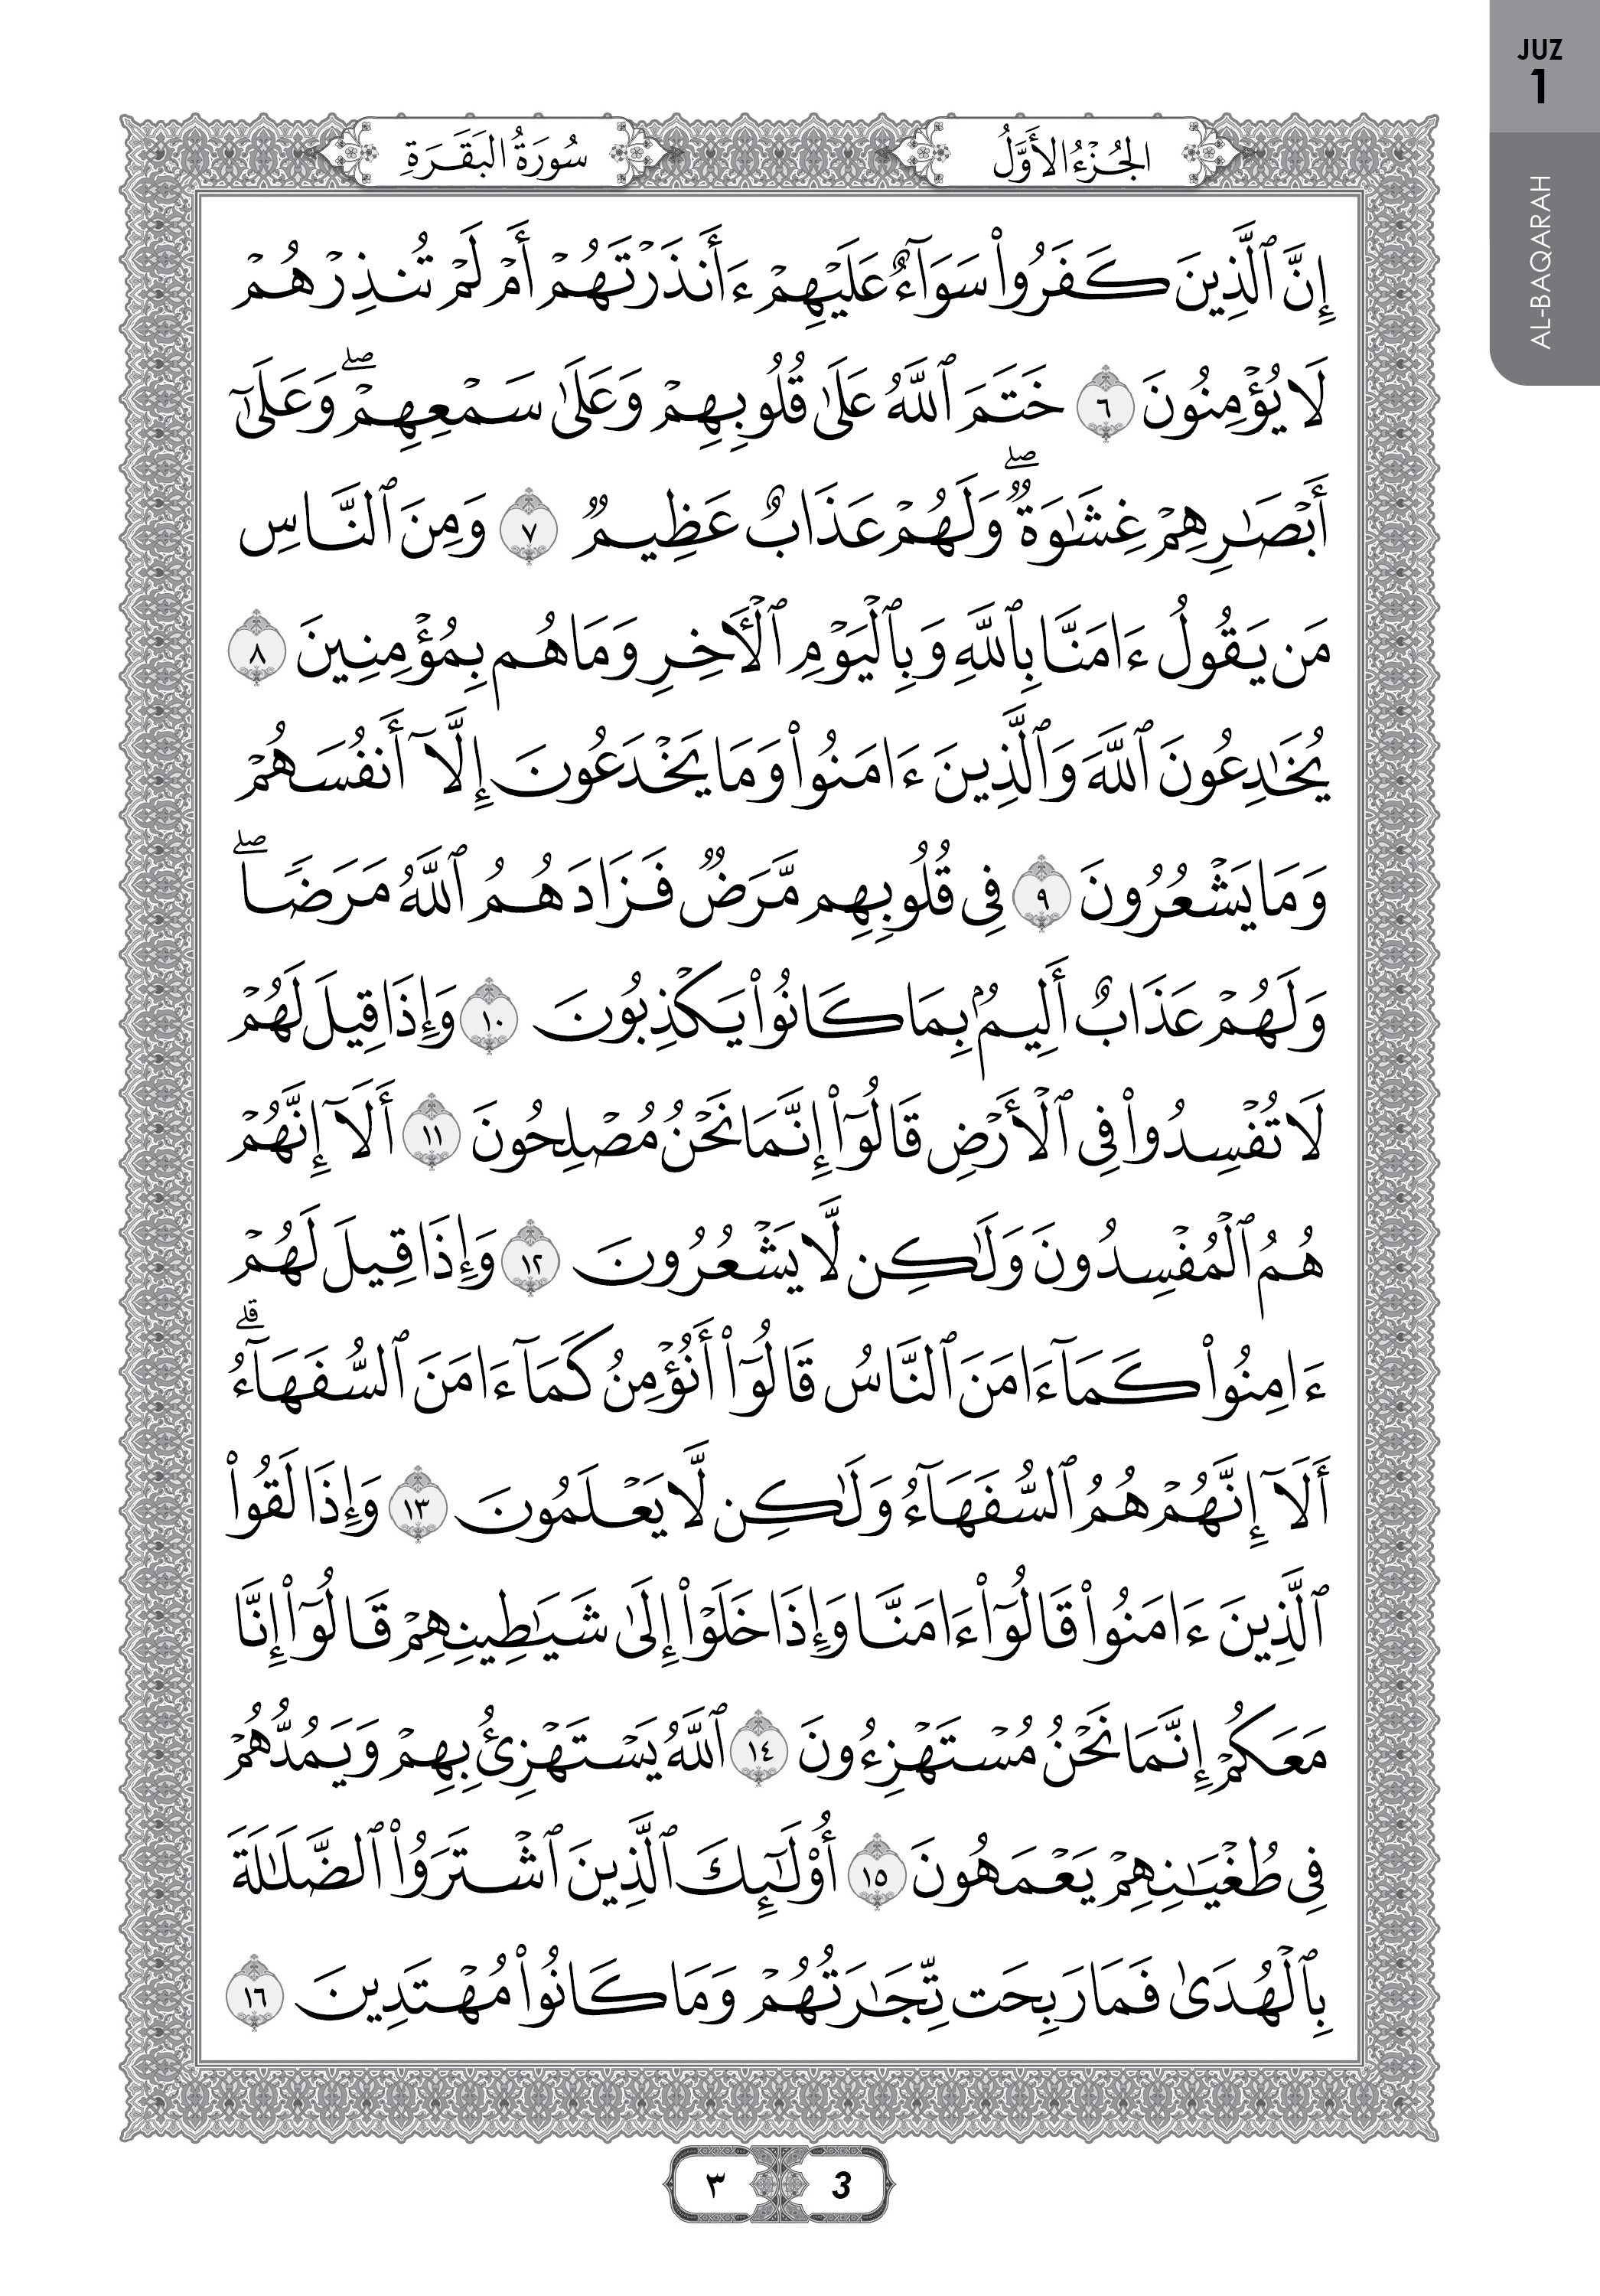 JUZ
1
AL-BAQARAH
الجُزْءُ الأَوَّلُ
سُورَةُ البَقَرَةِ
إِنَّ ٱلَّذِينَ كَفَرُوا۟ سَوَآءٌ عَلَيْهِمْ ءَأَنذَرْتَهُمْ أَمْ لَمْ تُنذِرْهُمْ
لَا يُؤْمِنُونَ ٦ خَتَمَ ٱللَّهُ عَلَىٰ قُلُوبِهِمْ وَعَلَىٰ سَمْعِهِمْ ۖ وَعَلَىٰٓ
أَبْصَـٰرِهِمْ غِشَـٰوَةٌ ۖ وَلَهُمْ عَذَابٌ عَظِيمٌ ٧ وَمِنَ ٱلنَّاسِ
مَن يَقُولُ ءَامَنَّا بِٱللَّهِ وَبِٱلْيَوْمِ ٱلْـَٔاخِرِ وَمَا هُم بِمُؤْمِنِينَ ٨
يُخَـٰدِعُونَ ٱللَّهَ وَٱلَّذِينَ ءَامَنُوا۟ وَمَا يَخْدَعُونَ إِلَّآ أَنفُسَهُمْ
وَمَا يَشْعُرُونَ ٩ فِى قُلُوبِهِم مَّرَضٌ فَزَادَهُمُ ٱللَّهُ مَرَضًا ۖ
وَلَهُمْ عَذَابٌ أَلِيمٌۢ بِمَا كَانُوا۟ يَكْذِبُونَ ١٠ وَإِذَا قِيلَ لَهُمْ
لَا تُفْسِدُوا۟ فِى ٱلْأَرْضِ قَالُوٓا۟ إِنَّمَا نَحْنُ مُصْلِحُونَ ١١ أَلَآ إِنَّهُمْ
هُمُ ٱلْمُفْسِدُونَ وَلَـٰكِن لَّا يَشْعُرُونَ ١٢ وَإِذَا قِيلَ لَهُمْ
ءَامِنُوا۟ كَمَآ ءَامَنَ ٱلنَّاسُ قَالُوٓا۟ أَنُؤْمِنُ كَمَآ ءَامَنَ ٱلسُّفَهَآءُ ۗ
أَلَآ إِنَّهُمْ هُمُ ٱلسُّفَهَآءُ وَلَـٰكِن لَّا يَعْلَمُونَ ١٣ وَإِذَا لَقُوا۟
ٱلَّذِينَ ءَامَنُوا۟ قَالُوٓا۟ ءَامَنَّا وَإِذَا خَلَوْا۟ إِلَىٰ شَيَـٰطِينِهِمْ قَالُوٓا۟ إِنَّا
مَعَكُمْ إِنَّمَا نَحْنُ مُسْتَهْزِءُونَ ١٤ ٱللَّهُ يَسْتَهْزِئُ بِهِمْ وَيَمُدُّهُمْ
فِى طُغْيَـٰنِهِمْ يَعْمَهُونَ ١٥ أُو۟لَـٰٓئِكَ ٱلَّذِينَ ٱشْتَرَوُا۟ ٱلضَّلَـٰلَةَ
بِٱلْهُدَىٰ فَمَا رَبِحَت تِّجَـٰرَتُهُمْ وَمَا كَانُوا۟ مُهْتَدِينَ ١٦
٣ 3